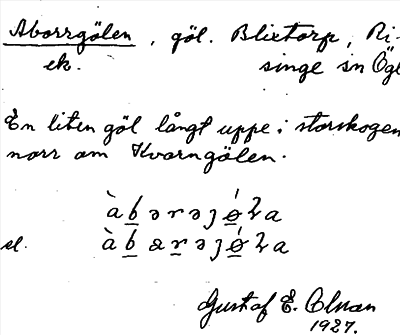 Aborrgölen, göl. Blixtorp, Ri-
ek. singe sn Ögl
En liten göl långt uppe i storskogen
norr om Kvarngölen.
àbərəȷǿɀa
el. àbarəȷǿɀa
Gustaf E. Olsson
1927.